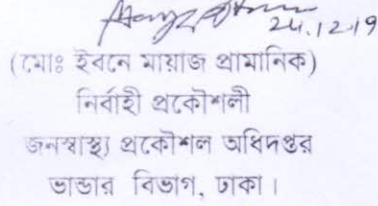 24.12.19
(মোঃ ইবনে মায়াজ প্রামানিক)
নির্বাহী প্রকৌশলী
জনস্বাস্থ্য প্রকৌশল অধিদপ্তর
ভান্ডার বিভাগ, ঢাকা।